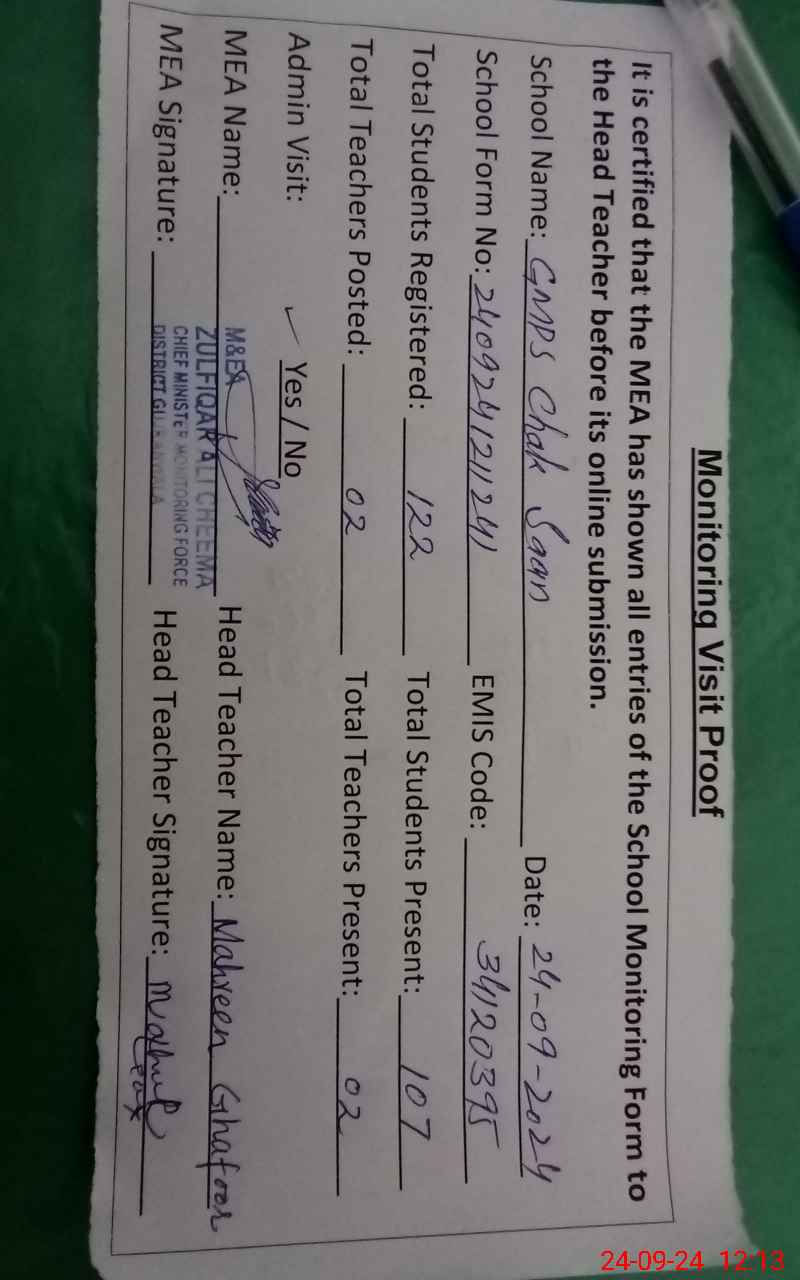 Monitoring Visit Proof
It is certified that the MEA has shown all entries of the School Monitoring Form to
the Head Teacher before its online submission.
School Name: GMPS Chak Sgan Date: 24-09-2024
School Form No: 240924121124 EMIS Code: 34120395
Total Students Registered: 122 Total Students Present: 107
Total Teachers Posted: 02 Total Teachers Present: 02
Admin Visit: ✓ Yes / No
MEA Name: M&EA ZULFIQAR ALI CHEEMA Head Teacher Name: Mahreen Ghafoor
CHIEF MINISTER MONITORING FORCE
MEA Signature: DISTRICT GUJRANWALA Head Teacher Signature:
24-09-24 12:13